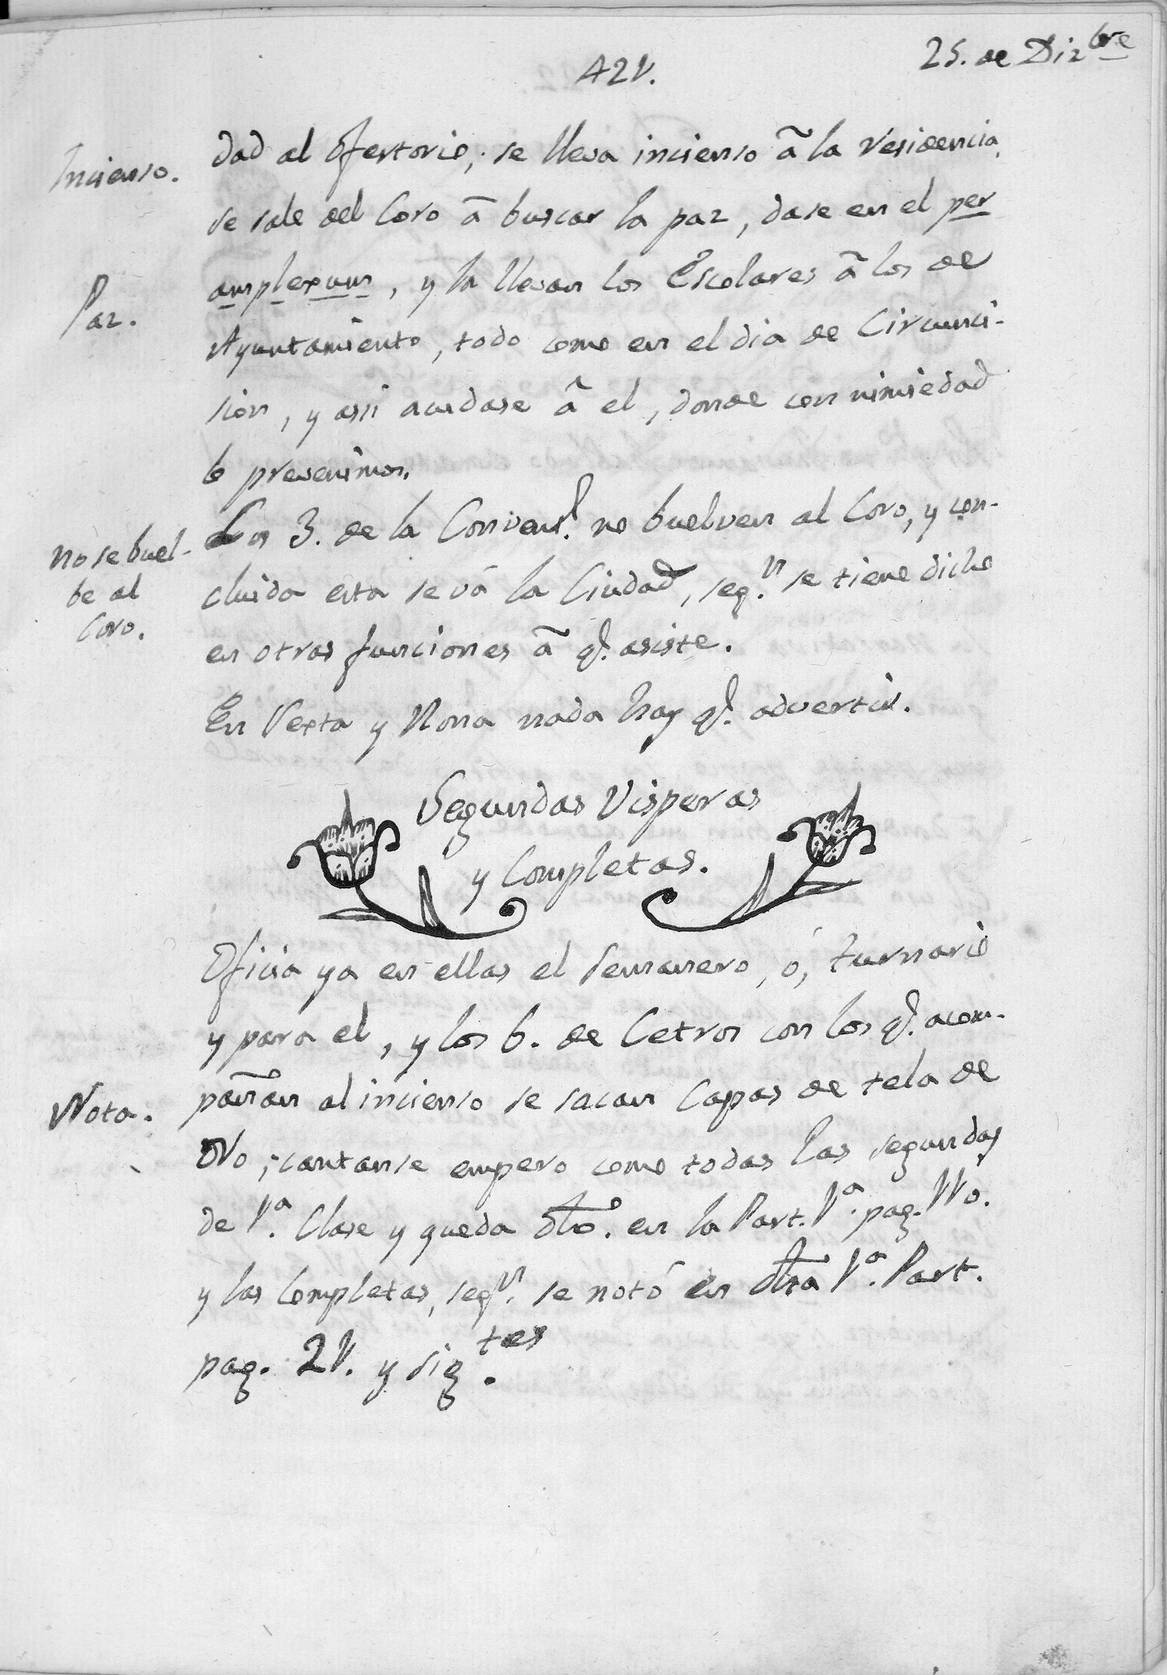 421.
25. de Dizbre
Incienso.
dad al Ofertorio; se lleva incienso â la residencia,
se sale del Coro â buscar la paz, dase en el per
Paz.
amplexum, y la llevan los Escolares â los de
Ayuntamiento, todo como en el dia de Circunci-
sion, y assi acudase â el, donde con nimiedad
lo prevenimos.
No se buel-
be al
Coro.
Los 3. de la Convers.l no buelven al Coro, y con-
cluida esta se vá la Ciudad, seg.n se tiene dicho
en otras funciones â q.e asiste.
En Sexta y Nona nada hay q.e advertir.
Segundas Visperas
y Completas.
Oficia ya en ellas el Semanero, ó, turnario
y para el, y los 6. de Cetros con los q.e acom-
Nota.
pañan al incienso se sacan Capas de tela de
Oro; cantanse empero como todas las segundas
de 1.ª Clase y queda dho. en la Part. 1.ª pag. 110.
y las Completas, seg.n se notó en dha 1.ª Part.
pag. 21. y sig.tes